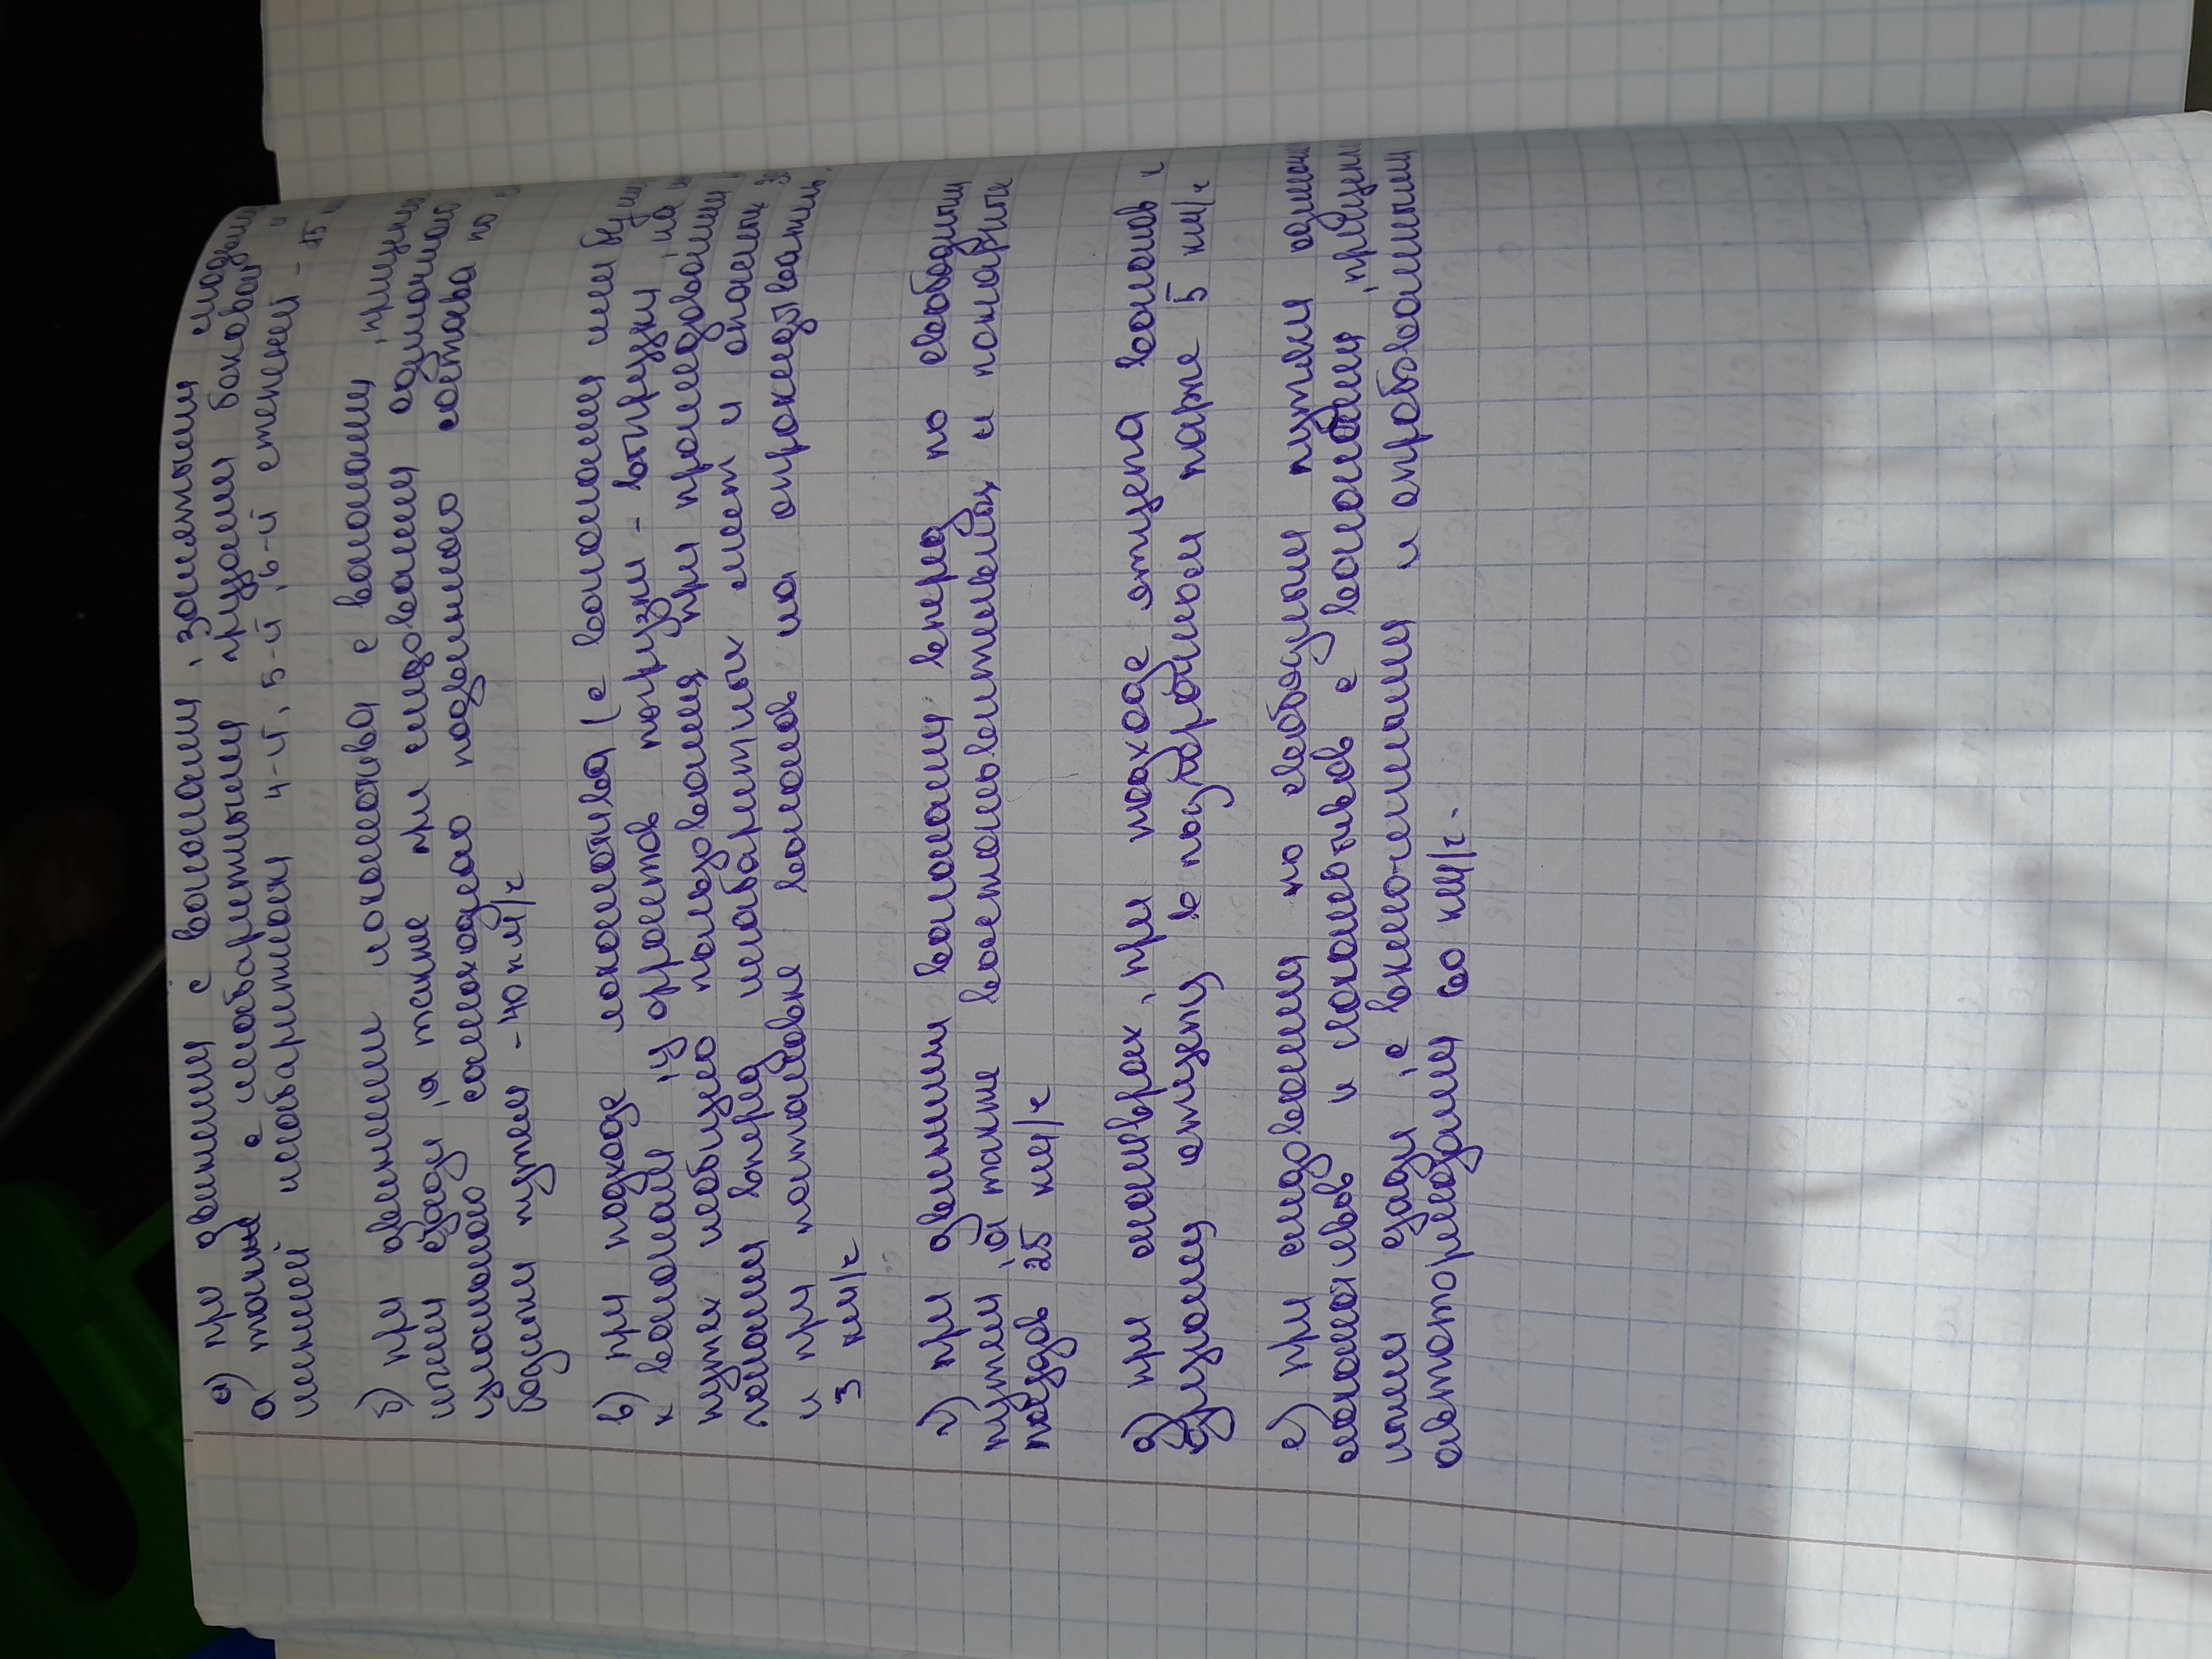 а) при движении с вагонами, занятыми людьми
а также с негабаритными грузами боковой и
нижней негабаритности 4-й, 5-й, 6-й степеней - 15
б) при движении локомотива с вагонами, прицепленными
хвосту, а также при следовании одиночного
самоходного подвижного состава по
бодным путям - 40 км/ч
в) при подходе локомотива (с вагонами или без
к вагонам, у фронтов погрузки - выгрузки, на
путях необщего пользования при проследовании
вагонами вперед негабаритных мест и опасных
и при постановке вагонов на опрокидыватель,
3 км/ч
г) при движении вагонами вперед по свободным
путям, а также восстановительных и пожарных
поездов 25 км/ч
д) при маневрах, при подходе отцепа вагонов к
другому отцепу в подгорочном парке 5 км/ч
е) при следовании по свободным путям одиночных
локомотивов и локомотивов с вагонами, прицепленными
сзади, с включенными и опробованными
автотормозами 60 км/ч.